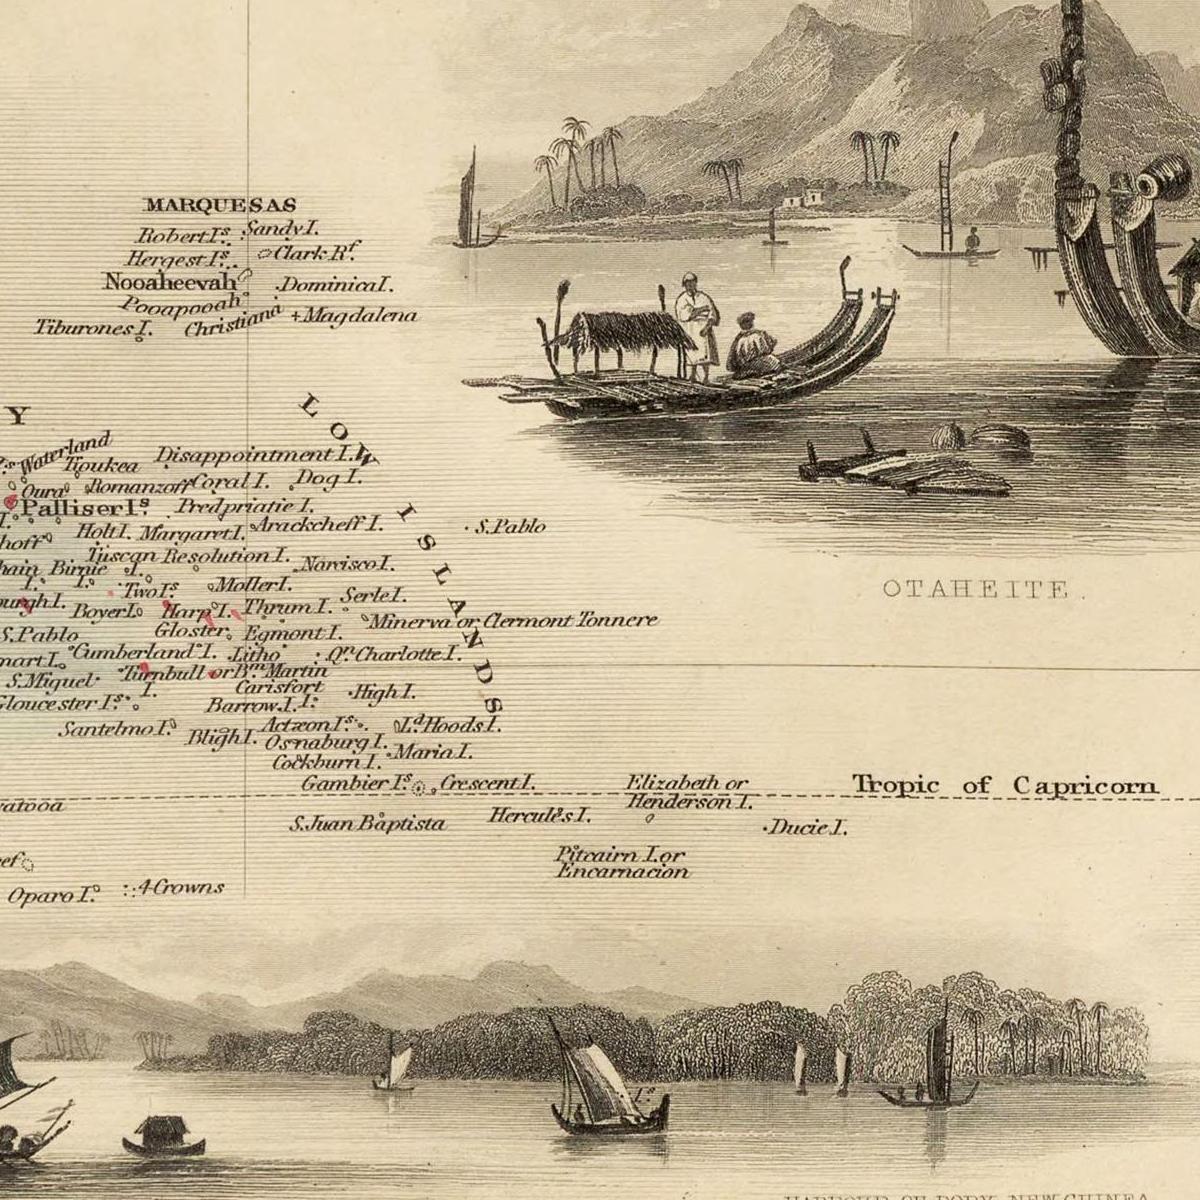 MARQUESAS
Robert Iˢ.
Sandy I.
Hergest Iˢ.
Clark Rᶠ.
Nooaheevah
Dominica I.
Pooapooah
Tiburones I.
Christiana
Magdalena
Y
LOW ISLANDS
Waterland
Tioukea
Disappointment I.
Oura
Romanzoff
Coral I.
Dog I.
Palliser Iˢ.
Predpriatie I.
Holt I.
Margaret I.
Arackcheff I.
S. Pablo
Tuscan
Resolution I.
Birnie I.
Narciso I.
I.
I.
Two Iˢ.
Moller I.
Serle I.
Boyer I.
Harp I.
Thrum I.
Minerva or Clermont Tonnere
S. Pablo
Gloster
Egmont I.
Cumberland I.
Litho
Qⁿ. Charlotte I.
S. Miguel
Turnbull or Bᵐ. Martin I.
Carisfort I.
High I.
Gloucester Iˢ.
Barrow I.
Santelmo I.
Actæon Iˢ.
Lᵈ. Hoods I.
Bligh I.
Osnaburg I.
Maria I.
Cockburn I.
Gambier Iˢ.
Crescent I.
Elizabeth or
Henderson I.
Tropic of Capricorn
S. Juan Baptista
Hercules I.
Ducie I.
Pitcairn I. or
Encarnacion
Oparo I.
4 Crowns
OTAHEITE.
HARBOUR OF DORY, NEW GUINEA